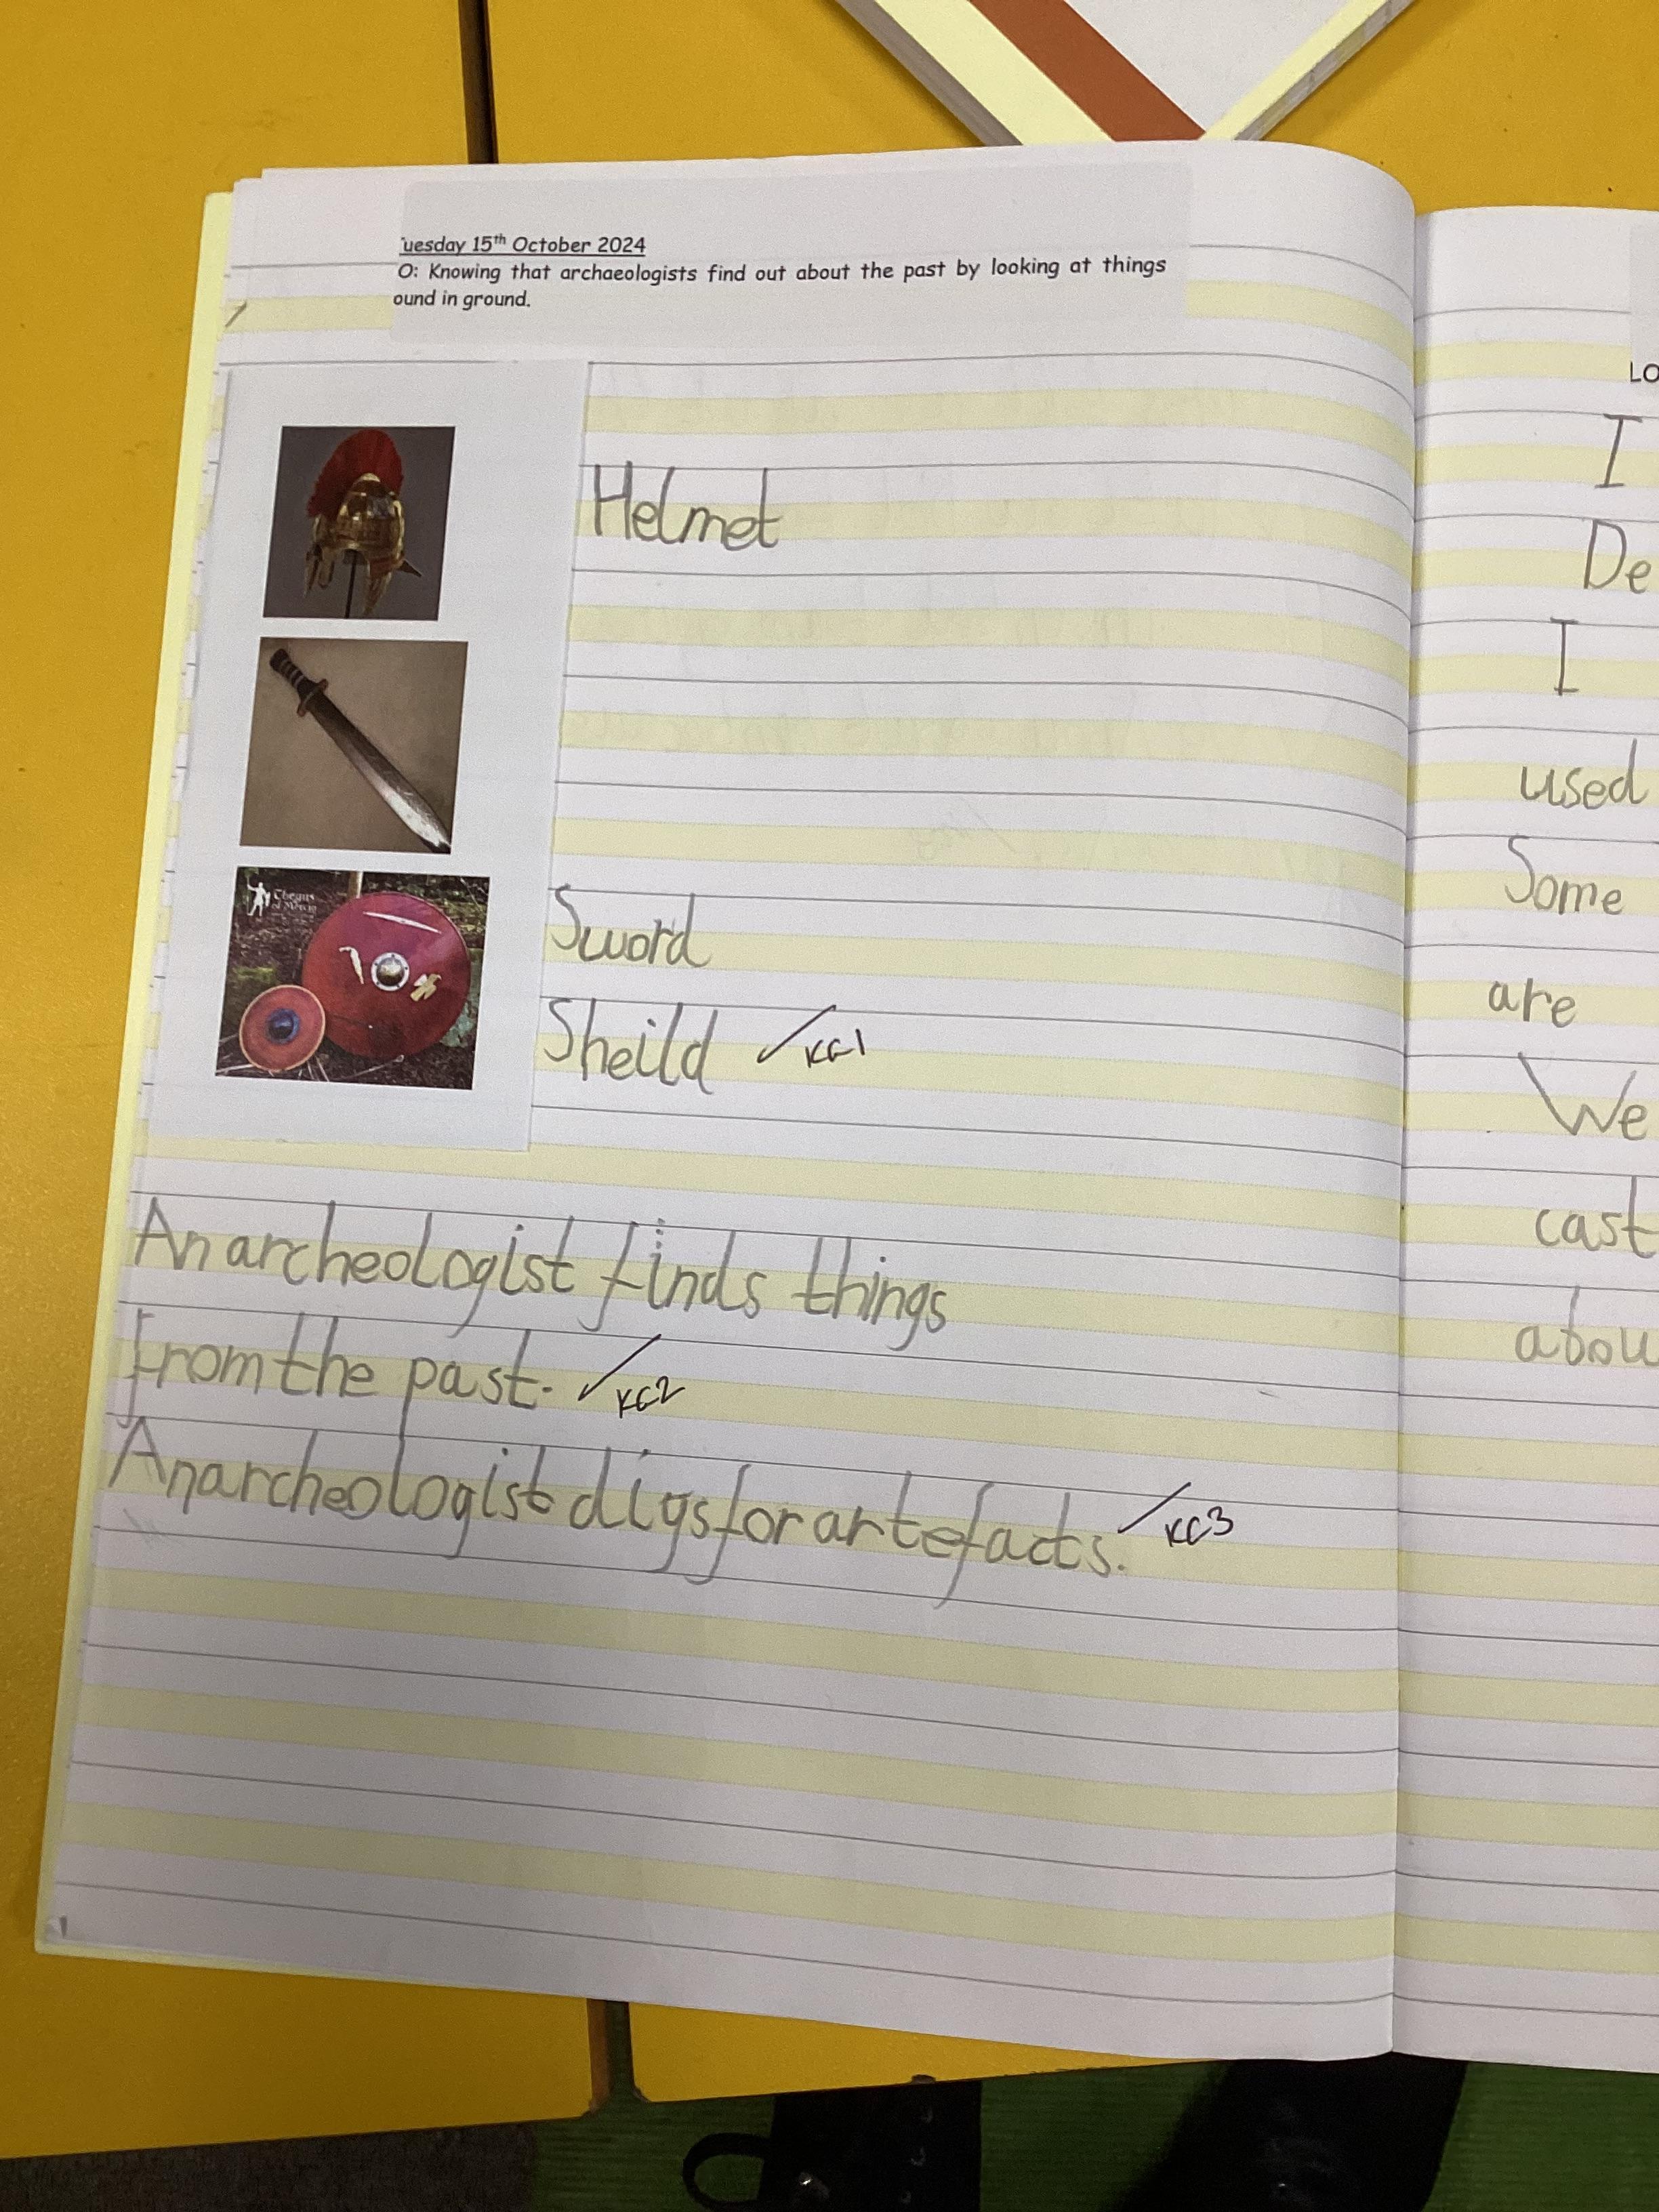 uesday 15th October 2024
O: Knowing that archaeologists find out about the past by looking at things
ound in ground.
Helmet
Thegns
of Mercia
Sword
Sheild ✓ KC1
An archeologist finds things
from the past. ✓ KC2
An archeologist digs for artefacts. ✓ KC3
LO
I
De
I
used
Some
are
We
cast
abou